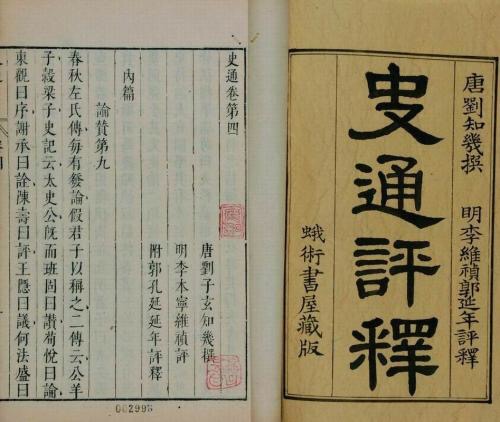 唐劉知幾撰
史通評釋
明李維禎郭延年評釋
蛾術書屋藏版
史通卷第四
唐劉子玄知幾撰
明李本寧維禎評
附郭孔延延年評釋
內篇
論贊第九
春秋左氏傳每有發論假君子以稱之二傳云公羊
子穀梁子史記云太史公旣而班固曰讚荀悅曰論
東觀曰序謝承曰詮陳壽曰評王隱曰議何法盛曰
002993